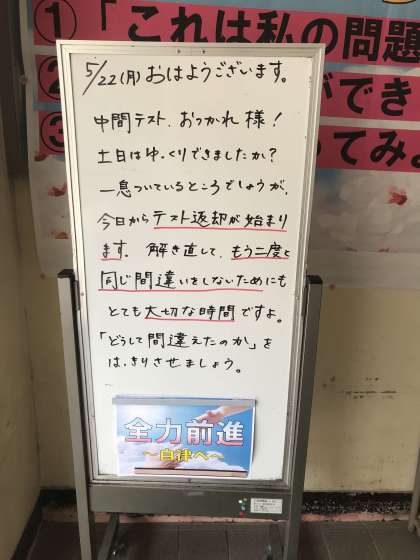 ①「これは私の問題
②
ができ
③
ってみよ
5/22(月)おはようございます。
中間テスト、おつかれ様!
土日はゆっくりできましたか?
一息ついているところでしょうが、
今日からテスト返却が始まり
ます。解き直して、もう二度と
同じ間違いをしないためにも
とても大切な時間ですよ。
「どうして間違えたのか」を
はっきりさせましょう。
全力前進
〜自律へ〜